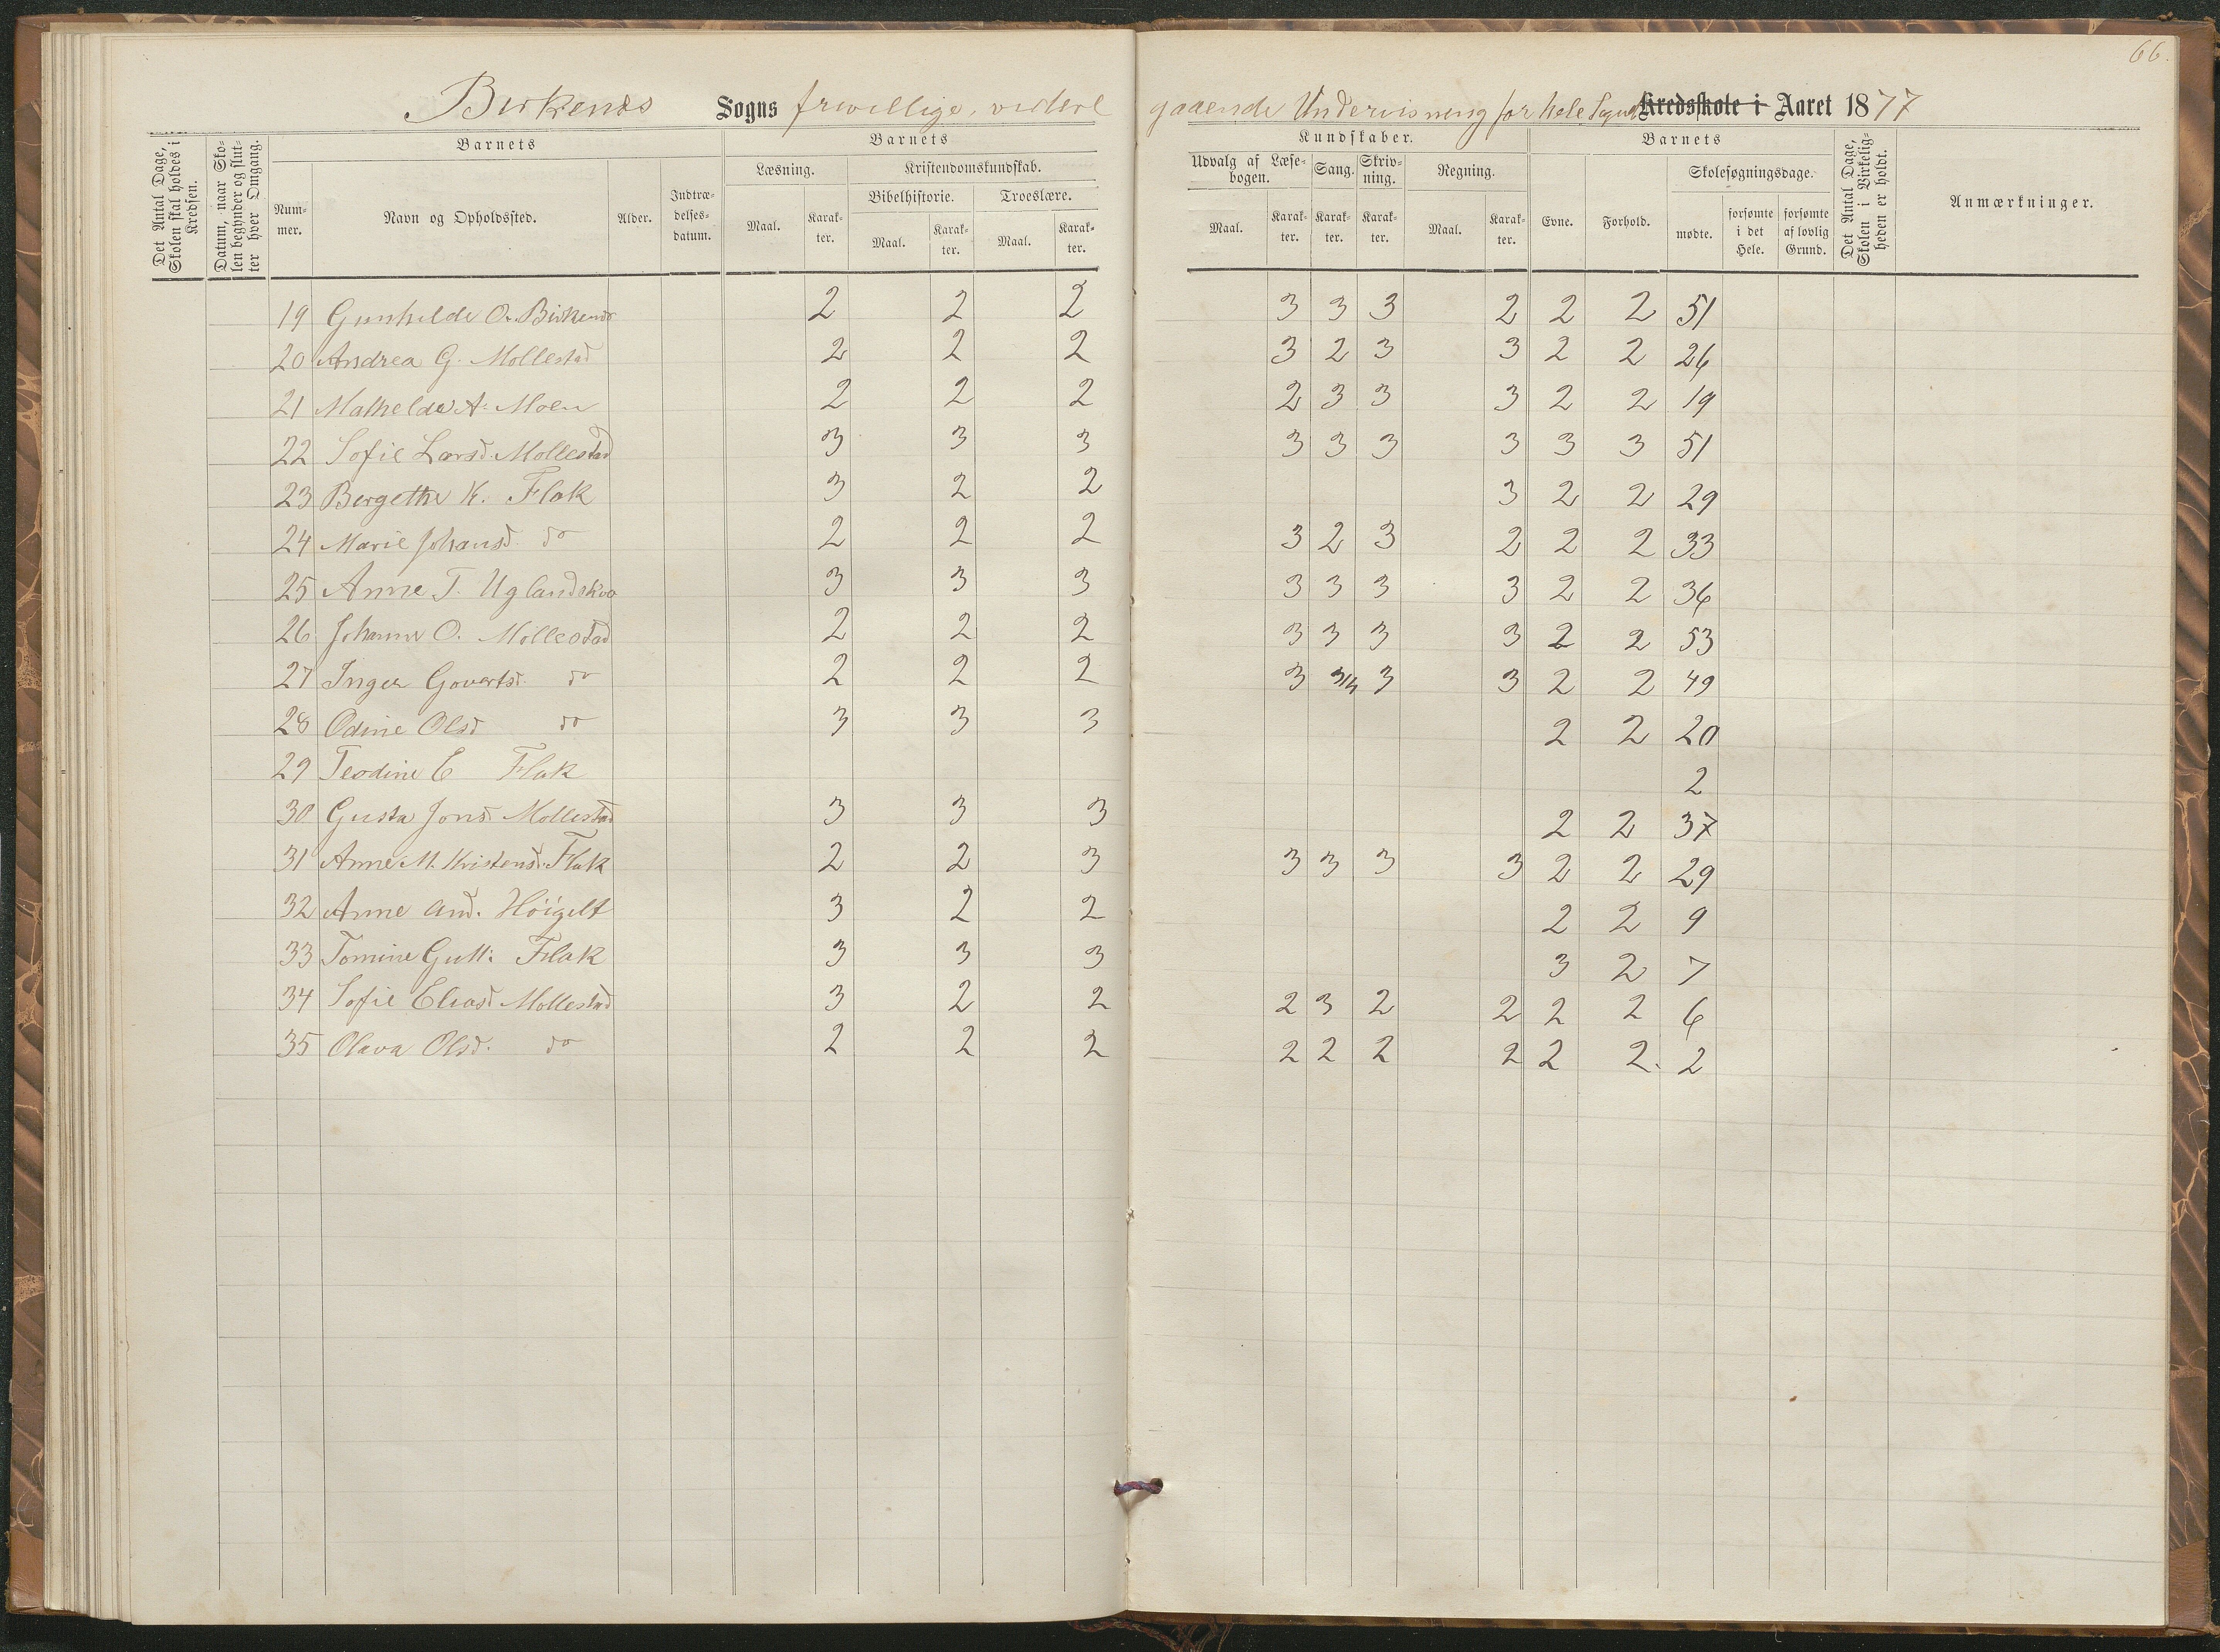 66.
Birkenes Sogns frivillige, videre gaaende Undervisning for hele Sognet Kredsskole i Aaret 1877
Det Antal Dage, Skolen skal holdes i Kredsen.
Datum, naar Skolen begynder og slutter hver Omgang.
Barnets
Nummer.
Navn og Opholdssted.
Alder.
Indtrædelsesdatum.
Barnets
Læsning.
Maal.
Karakter.
Kristendomskundskab.
Bibelhistorie.
Maal.
Karakter.
Troeslære.
Maal.
Karakter.
Kundskaber.
Udvalg af Læsebogen.
Maal.
Karakter.
Sang.
Karakter.
Skrivning.
Karakter.
Regning.
Maal.
Karakter.
Barnets
Evne.
Forhold.
Skolesøgningsdage.
mødte.
forsømte i det Hele.
forsømte af lovlig Grund.
Det Antal Dage, Skolen i Virkeligheden er holdt.
Anmærkninger.
19 Gunhilde O. Birkenes 2 2 2 3 3 3 2 2 2 51
20 Andrea G. Mollestad 2 2 2 3 2 3 3 2 2 26
21 Mathelde A. Moen 2 2 2 2 3 3 3 2 2 19
22 Sofie Larsd. Mollestad 3 3 3 3 3 3 3 3 3 51
23 Bergethe K. Flak 3 2 2 3 2 2 29
24 Marie Johansd. do 2 2 2 3 2 3 2 2 2 33
25 Anne T. Uglandskva 3 3 3 3 3 3 3 2 2 36
26 Johanne O. Mollestad 2 2 2 3 3 3 3 2 2 53
27 Inger Govertsd. do 2 2 2 3 3/4 3 3 2 2 49
28 Odine Olsd do 3 3 3 2 2 20
29 Teodine E Flak 2
30 Gusta Jonsd Mollestad 3 3 3 2 2 37
31 Anne M. Kristensd. Flak 2 2 3 3 3 3 3 2 2 29
32 Anne And. Höigelt 3 2 2 2 2 9
33 Tomine Gutt: Flak 3 3 3 3 2 7
34 Sofie Eliasd Mollestad 3 2 2 2 3 2 2 2 2 6
35 Olava Olsd. do 2 2 2 2 2 2 2 2 2. 2